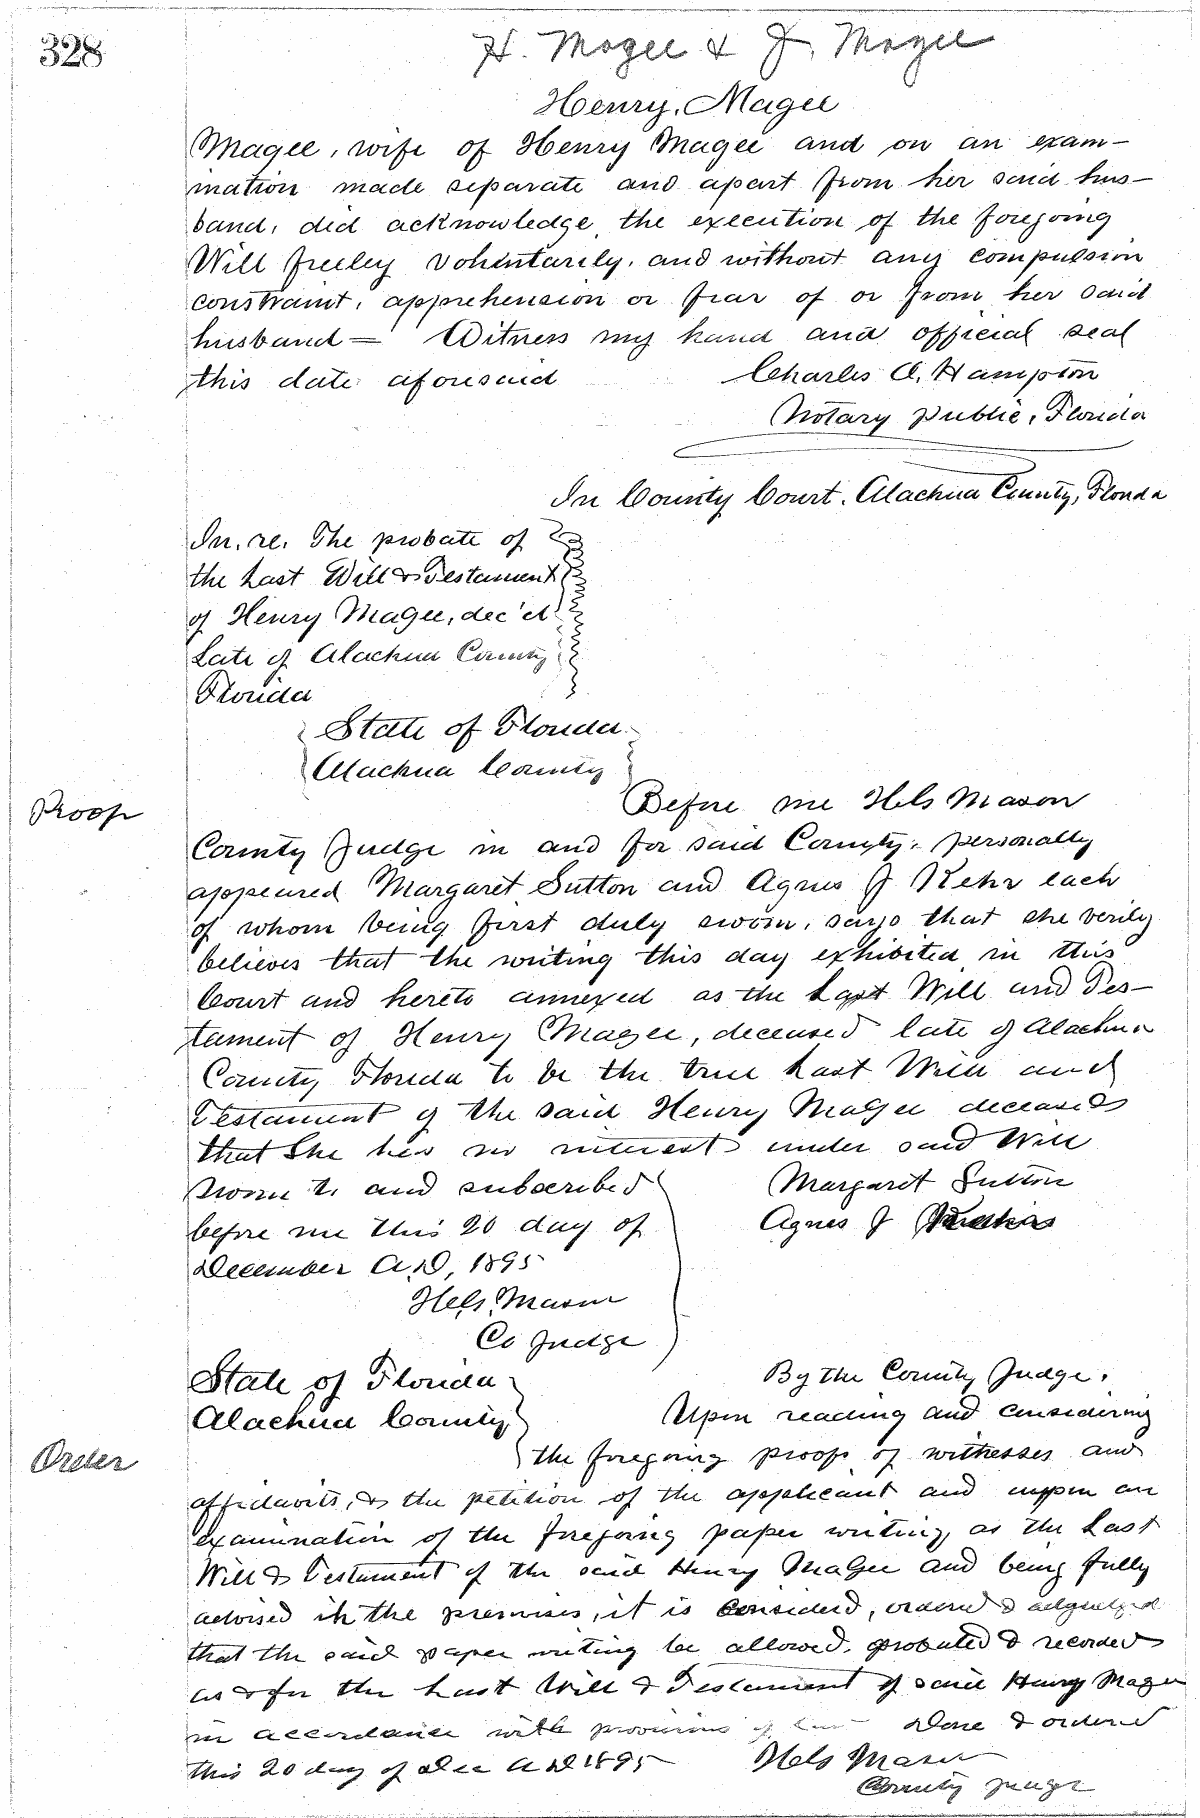 328
H. Magee & J. Magee
Henry, Magee
Magee, wife of Henry Magee and on an exam-
ination made separate and apart from her said hus-
band, did acknowledge the execution of the foregoing
Will freely voluntarily, and without any compulsion
constraint, apprehension or fear of or from her said
husband = Witness my hand and official seal
this date aforesaid Charles A. Hampton
Notary public, Florida
In County Court, Alachua County, Florida
In, re, The probate of
the Last Will & Testament
of Henry Magee, dec'ed
Late of Alachua County
Florida
State of Florida
Alachua County
Proof
Before me Mason
County Judge in and for said County, personally
appeared Margaret Sutton and Agnes J each
of whom being first duly sworn, says that she verily
believes that the writing this day exhibited in this
Court and hereto annexed as the Last Will and Tes-
tament of Henry Magee, deceased late of Alachua
County Florida to be the true Last Will and
Testament of the said Henry Magee deceased
that She has no interest under said Will
Sworn to and subscribed Margaret Sutton
before me this 20 day of Agnes J
December A.D, 1895
Mason
Co Judge
State of Florida By the County Judge,
Alachua County Upon reading and considering
Order
the foregoing proof of witnesses and
affidavits, & the petition of the applicant and uppon an
examination of the foregoing paper writing, as the Last
Will & Testament of the said Henry Magee and being fully
advised in the premises, it is considerd, ordered & adjudged
that the said paper writing be allowed, probated & recorded
as & for the Last Will & Testament of said Henry Magee
in accordance with provisions of law Done & ordered
this 20 day of Dec A D 1895 Mason
County Judge